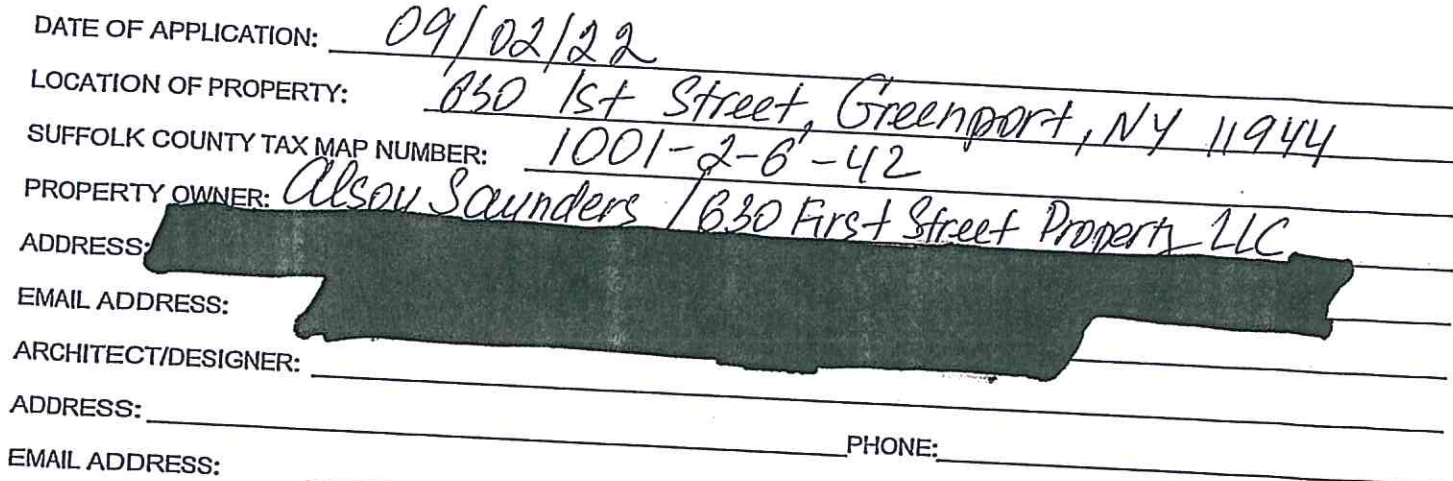 DATE OF APPLICATION: 09/02/22
LOCATION OF PROPERTY: 630 1st Street, Greenport, NY 11944
SUFFOLK COUNTY TAX MAP NUMBER: 1001-2-6-42
PROPERTY OWNER: Alsou Saunders / 630 First Street Property LLC
ADDRESS:
EMAIL ADDRESS:
ARCHITECT/DESIGNER:
ADDRESS: PHONE:
EMAIL ADDRESS: